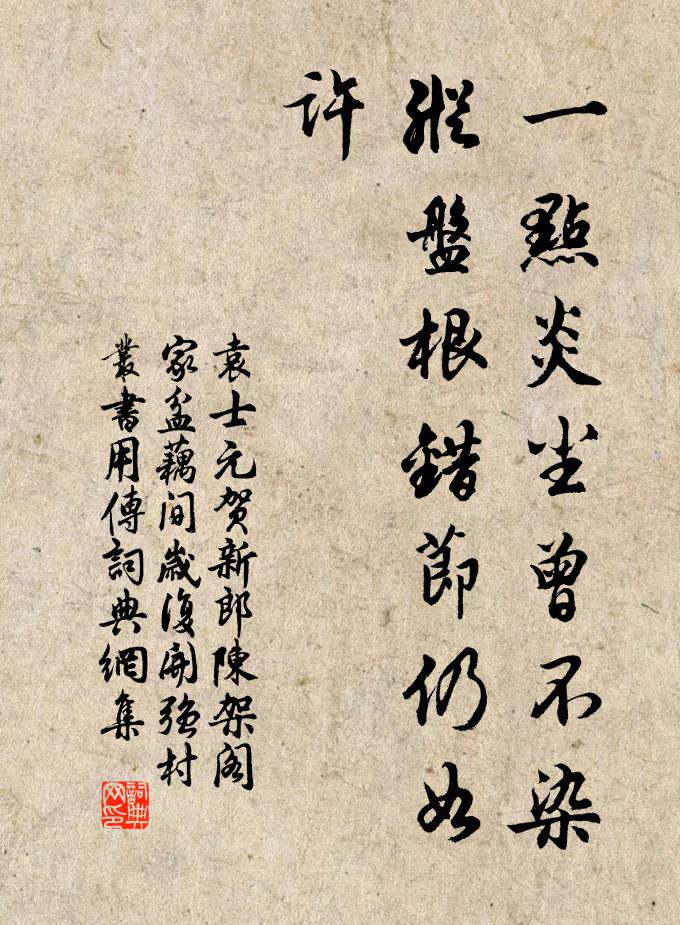 一點炎尘曾不染
縱盤根錯節仍如
許
袁士元賀新郎陳架阁
家盆藕間歲復開强村
叢書用傳詞典網集
詞典
网印